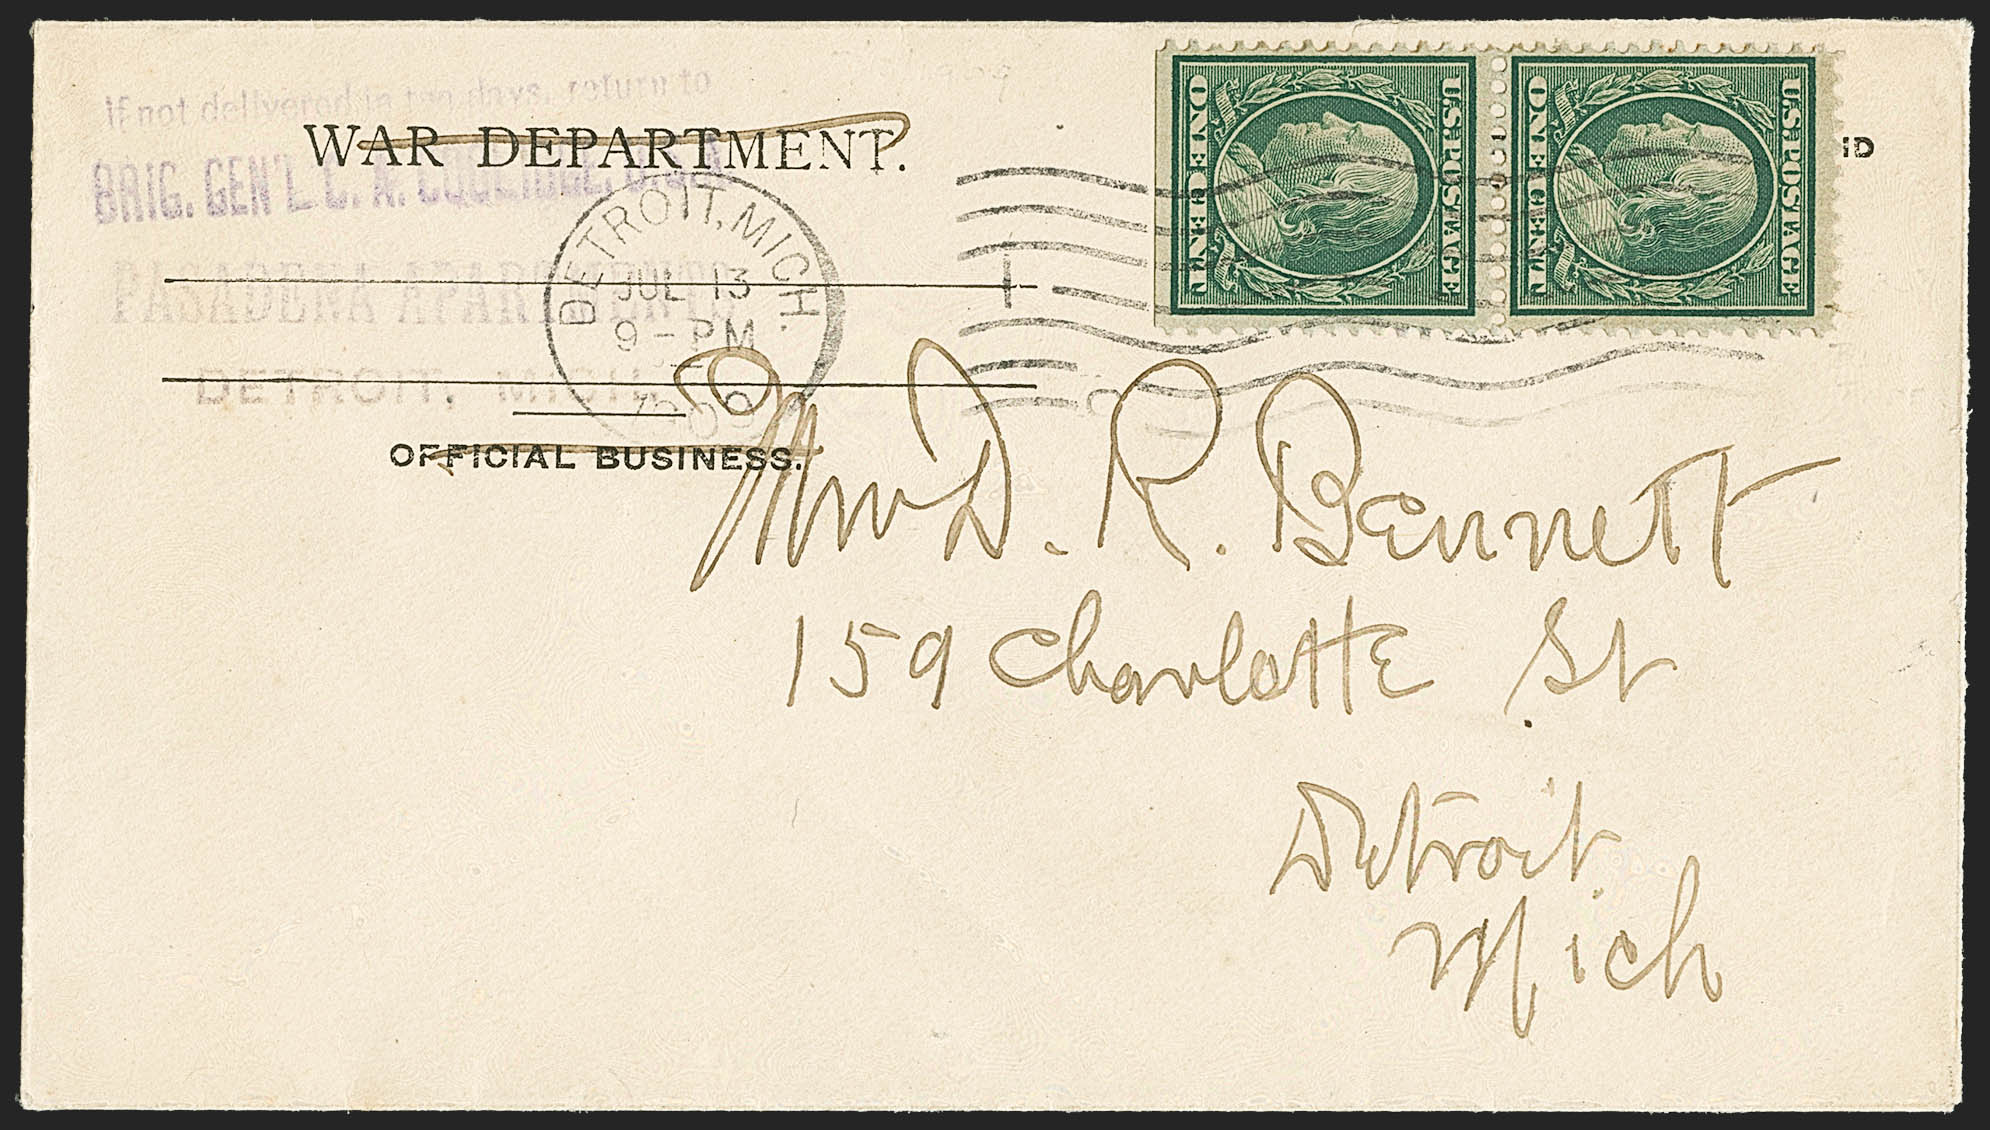 If not delivered in ten days, return to
WAR DEPARTMENT.
BRIG. GEN'L C. A. COOLIDGE, U.S.A.
PASADENA APARTMENTS
DETROIT, MICH.
OFFICIAL BUSINESS.
DETROIT, MICH.
JUL 13
9 - PM
1909
U.S. POSTAGE
ONE CENT
U.S. POSTAGE
ONE CENT
D. R. Bennett
159 Charlotte St
Detroit
Mich